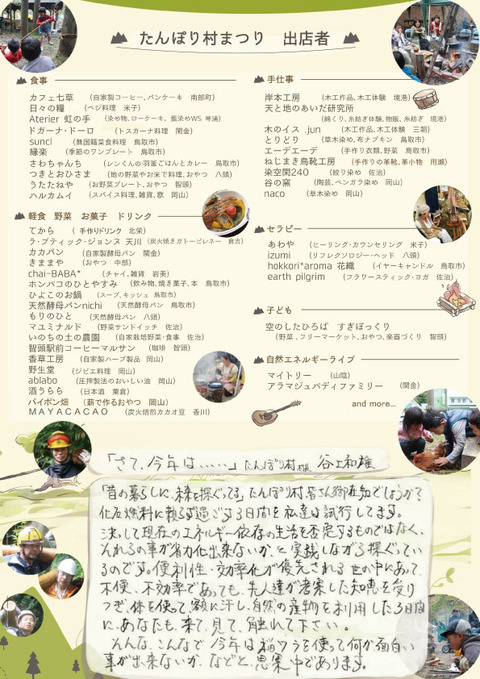 たんぽり村まつり 出店者
食事
カフェ七草 (自家製コーヒー、パンケーキ 南部町)
日々の糧 (ベジ料理 米子)
Aterier 虹の手 (染め物、ローケーキ、藍染めWS 琴浦)
ドガーナ・ドーロ (トスカーナ料理 関金)
sunci (無国籍菜食料理 鳥取市)
縁楽 (季節のワンプレート 鳥取市)
さわちゃんち (レンくんの羽釜ごはんとカレー 鳥取市)
つきとおひさま (地の野菜やお米で料理、おやつ 八頭)
うたたねや (お野菜プレート、おやつ 智頭)
ハルカムイ (スパイス料理、雑貨、歌 岡山)
軽食 野菜 お菓子 ドリンク
てから (手作りドリンク 北栄)
ラ・プティック・ジョンヌ 天川 (炭火焼きガトーピレネー 倉吉)
カカパン (自家製酵母パン 関金)
きままや (おやつ 中部)
chai-BABA* (チャイ、雑貨 岩美)
ホンバコのひとやすみ (飲み物、焼き菓子、本 鳥取市)
ひよこのお鍋 (スープ、キッシュ 鳥取市)
天然酵母パンnichi (天然酵母パン 鳥取市)
もりのひと (天然酵母パン 八頭)
マユミナルド (野菜サンドイッチ 佐治)
いのちの土の農園 (自家栽培野菜・食事 佐治)
智頭駅前コーヒーマルサン (珈琲 智頭)
香草工房 (自家製ハーブ製品 岡山)
野生堂 (ジビエ料理 岡山)
ablabo (圧搾製法のおいしい油 岡山)
酒うらら (日本酒 粟倉)
パイポン堀 (薪で作るおやつ 岡山)
MAYACACAO (炭火焙煎カカオ豆 香川)
手仕事
岸本工房 (木工作品、木工体験 境港)
天と地のあいだ研究所
(錦くり、糸紡ぎ体験、物販、糸紡ぎ 境港)
木のイス .jun (木工作品、木工体験 三朝)
とりどり (草木染め、布ナプキン 鳥取市)
エーデエーデ (手作り衣類、野菜 鳥取市)
ねじまき鳥靴工房 (手作りの革靴、革小物 用瀬)
染空間240 (絞り染め 佐治)
谷の窯 (陶芸、ベンガラ染め 岡山)
naco (草木染め 岡山)
セラピー
あわや (ヒーリング・カウンセリング 米子)
izumi (リフレクソロジー・ヘッド 八頭)
hokkori*aroma 花織 (イヤーキャンドル 鳥取市)
earth pilgrim (フラワースティック・ヨガ 佐治)
子ども
空のしたひろば すぎぼっくり
(野菜、フリーマーケット、おやつ、楽器づくり 智頭)
自然エネルギーライブ
マイトリー (山陰)
アラマジュバディファミリー (関金)
and more...
「さて、今年は……」たんぽり村 村長 谷上和雄
「昔の暮らしに、未来を探ぐってる」たんぽり村、皆さん御存知でしょうか?
化石燃料に頼らず過ごす3日間を私達は試行してます。
決して現在のエネルギー依存の生活を否定するものではなく、
それらの事が省力化出来ないか、と実践しながら探ぐってい
るのです。便利性・効率化が優先される世の中にあって
不便、不効率であっても、先人達が蓄案した知恵を受け
つぎ、体を使って、額に汗し、自然の産物を利用した3日間
に、あなたも、来て、見て、触れて下さい。
そんな、こんなで 今年は 使って何か面白い
事が出来ないか、などと、思案中であります。